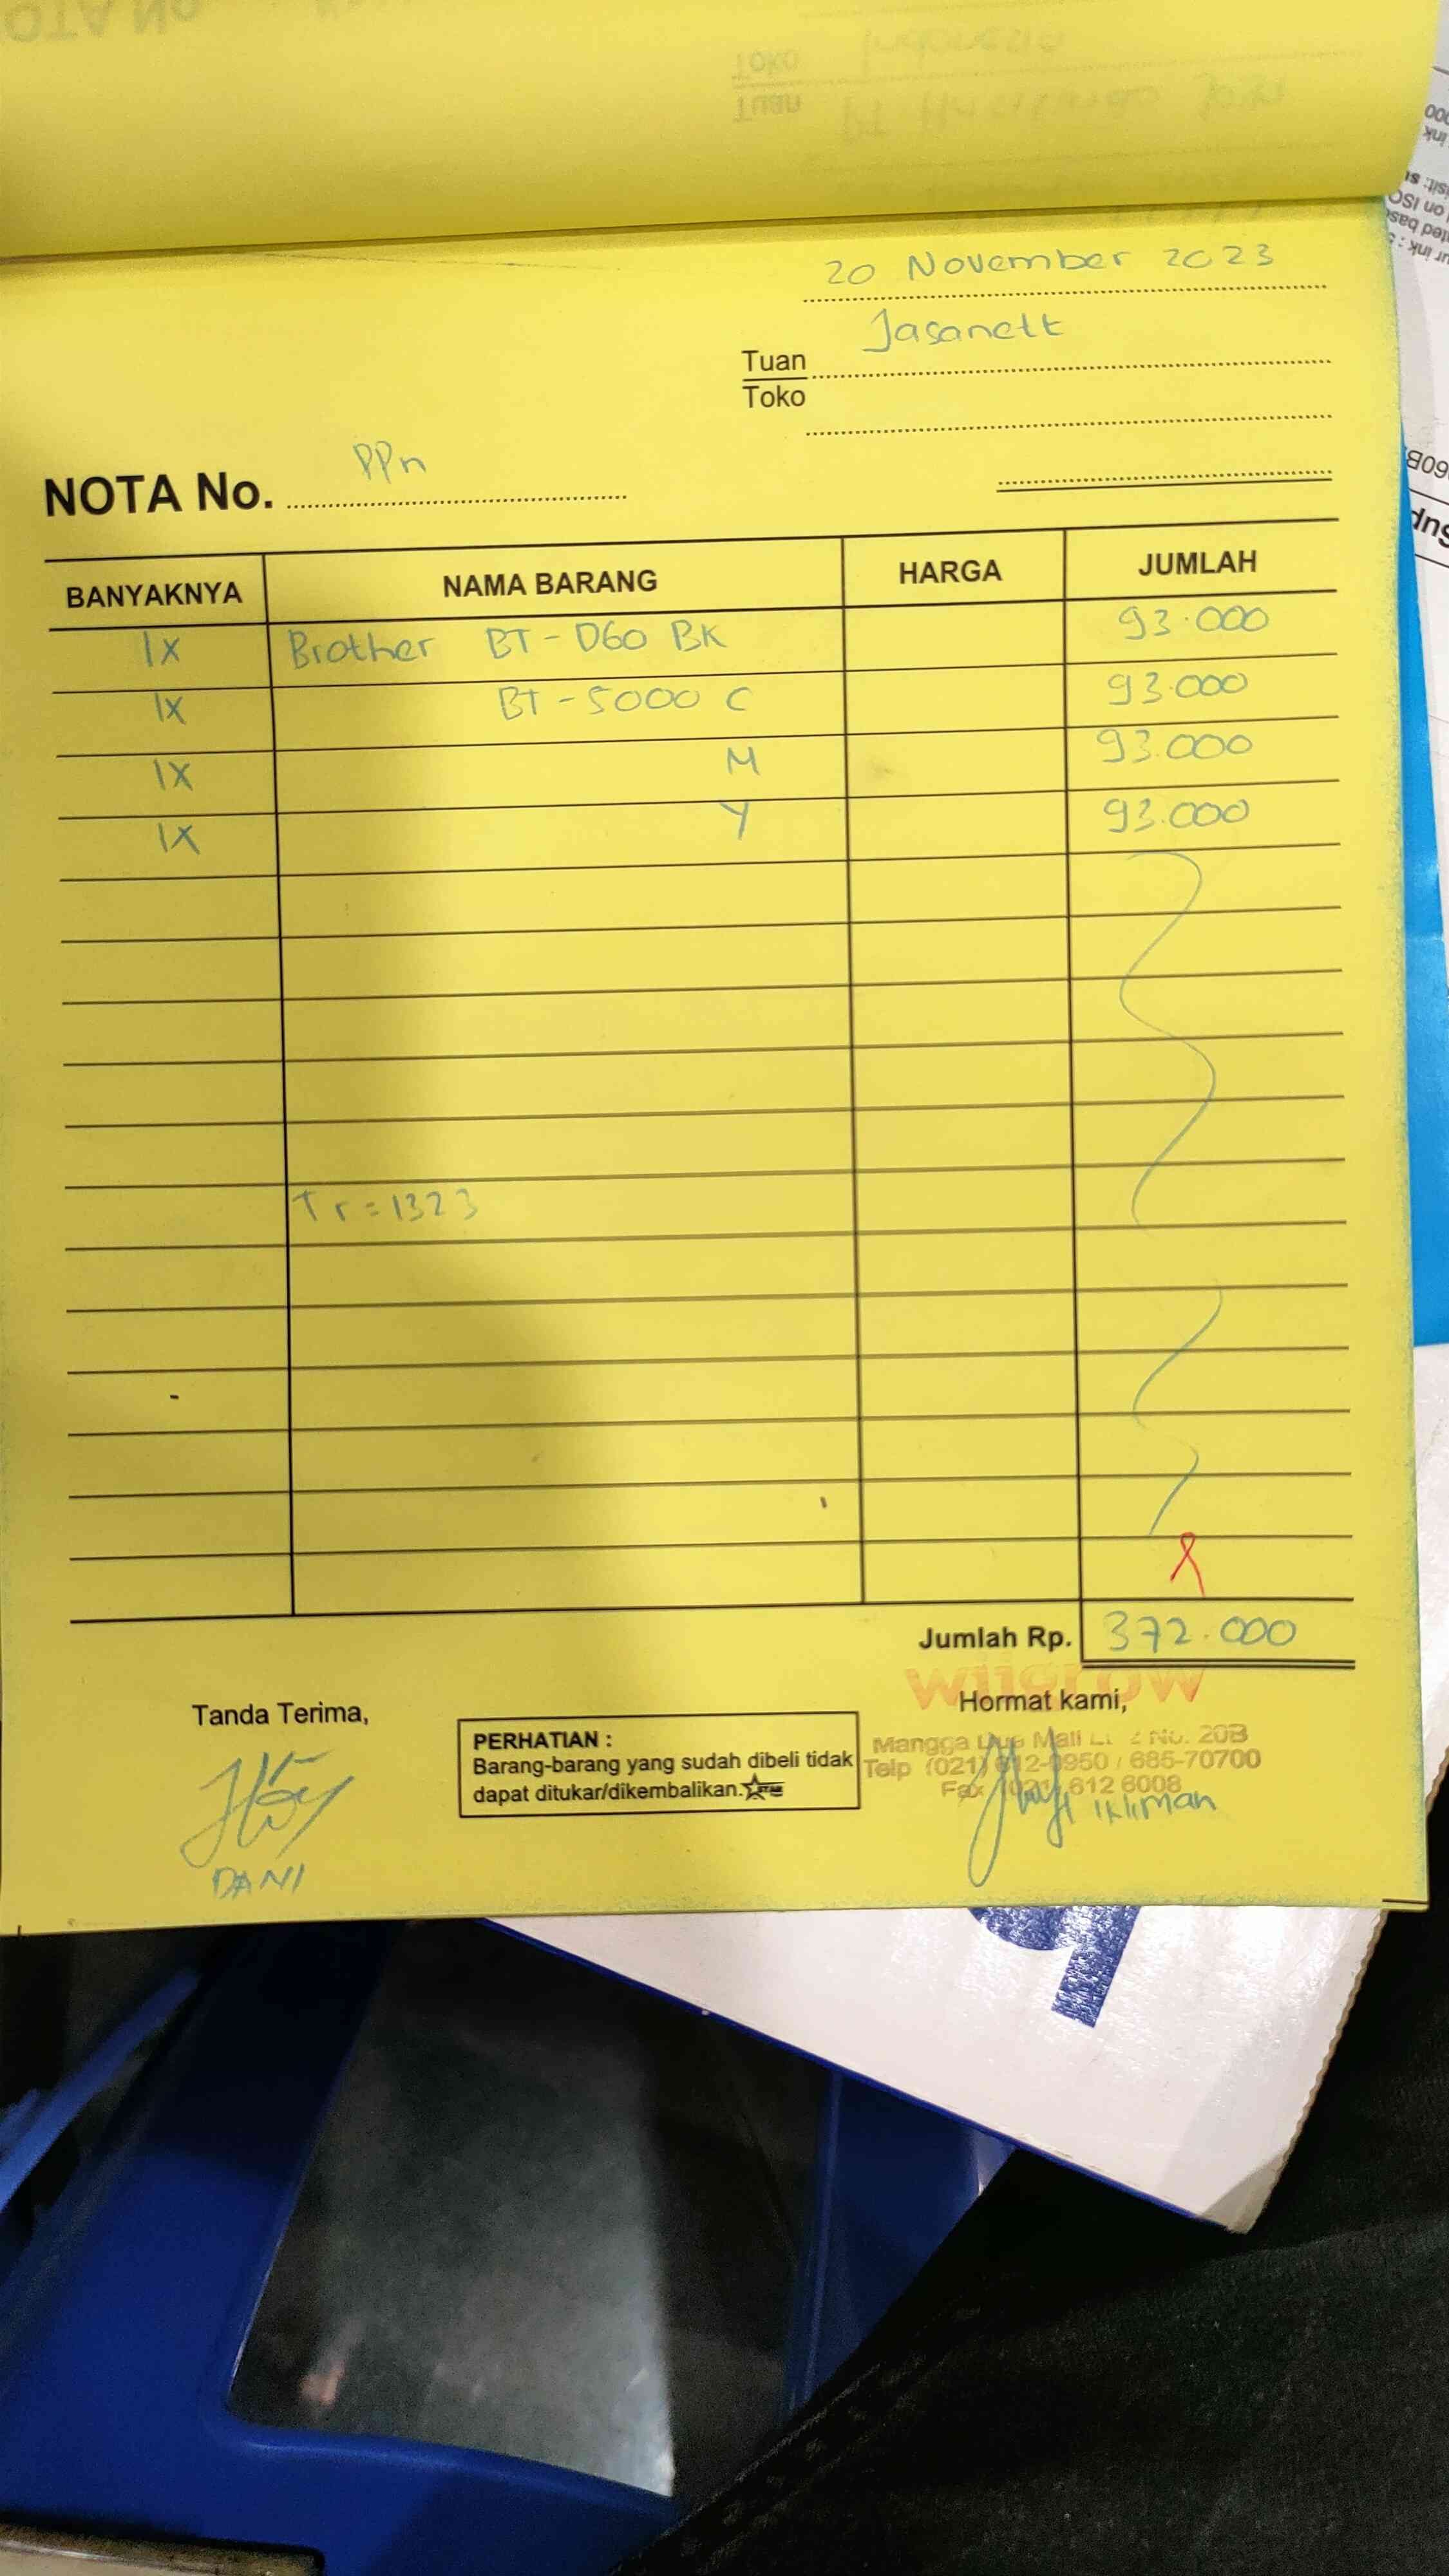 NOTA No.
Toko Indonesia
Tuan PT
20 November 2023
Jasanett
Tuan
Toko
PPn
NOTA No.
BANYAKNYA NAMA BARANG HARGA JUMLAH
1x Brother BT-D60 BK 93.000
1x BT-5000 C 93.000
1x M 93.000
1x Y 93.000
Tr=1323
Jumlah Rp. 372.000
Tanda Terima,
Hormat kami,
PERHATIAN :
Barang-barang yang sudah dibeli tidak
dapat ditukar/dikembalikan.
DANI
Mangga Dua Mall No. 20B
Telp (021) 612-0950 / 685-70700
Fax (021) 612 6008
Ikliman